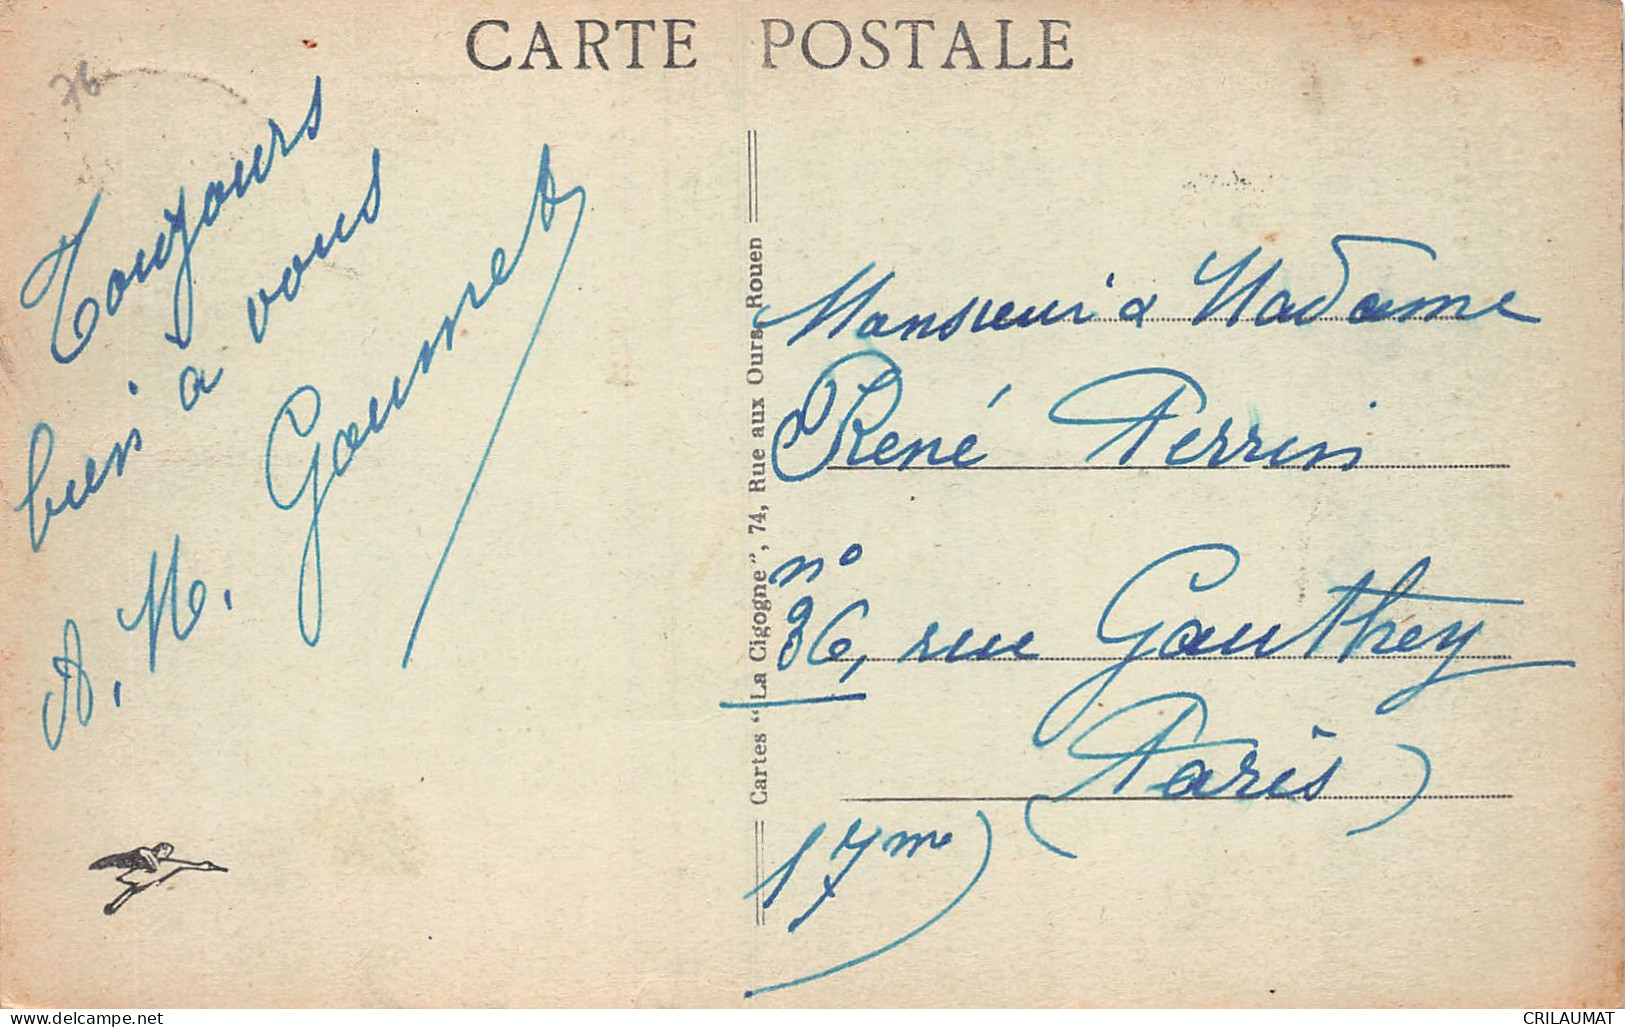 CARTE POSTALE
76
Toujours
bien à vous
A. M. Gournet
Cartes "La Cigogne", 74, Rue aux Ours, Rouen
Monsieur & Madame
René Perrin
n°
36, rue Gauthey
Paris
17me
www.delcampe.net
CRILAUMAT